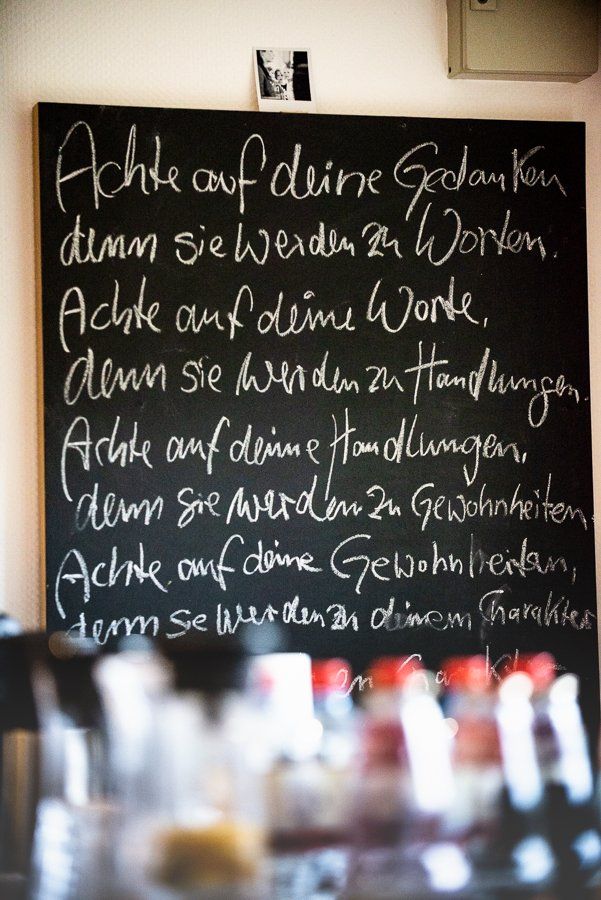 Achte auf deine Gedanken
denn sie werden zu Worten.
Achte auf deine Worte,
denn sie werden zu Handlungen.
Achte auf deine Handlungen,
denn sie werden zu Gewohnheiten.
Achte auf deine Gewohnheiten,
denn sie werden zu deinem Charakter